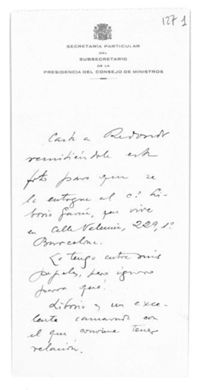 127 1
SECRETARIA PARTICULAR
DEL
SUBSECRETARIO
DE LA
PRESIDENCIA DEL CONSEJO DE MINISTROS
Carta a Redondo
remitiéndole esta
foto para que se
la entregue al c.º Li-
borio, que vive
en Calle Valencia, 229, 1º
Barcelona.
La tengo entre mis
papeles, pero ignoro
para qué.
Liborio es un exce-
lente camarada con
el que conviene tener
relación.